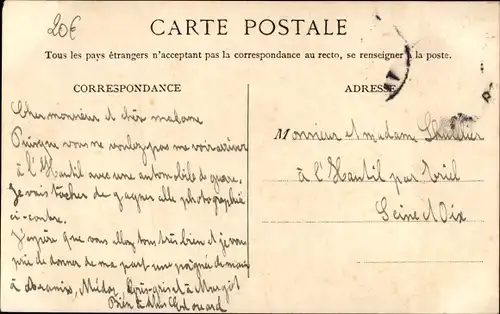 20€
CARTE POSTALE
Tous les pays étrangers n'acceptant pas la correspondance au recto, se renseigner à la poste.
CORRESPONDANCE
Cher monsieur et chèr madame
Puisque vous ne voulez pas me voir arriver
à l'Hautil avec une automobile de guerre.
Je vais tacher de gagner celle photographiée
ci-contre.
J'espère que vous allez tous très bien et je vous
prie de donner de ma part une poignée de main
à Médor, gris et à Margot
Bien à vous Edouard
ADRESSE
Monsieur et madame
à l'Hautil par Triel
Seine et Oix